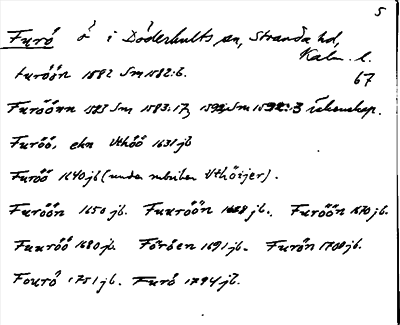 5
Furö ö i Döderhults sn, Stranda hd,
Kalm. l.
Furöön 1582 Sm 1582:6. 67
Furöönn 1583 Sm 1583:17, 1592 Sm 1592:3 räkenskap.
Furöö, ehn Uthöö 1631 jb
Furöö 1640 jb (under rubriken Uthöijer).
Furöön 1650 jb. Fuuröön 1658 jb. Furöön 1670 jb.
Fuuröö 1680 jb. Föröen 1691 jb. Furön 1708 jb.
Fourö 1751 jb. Furö 1794 jb.